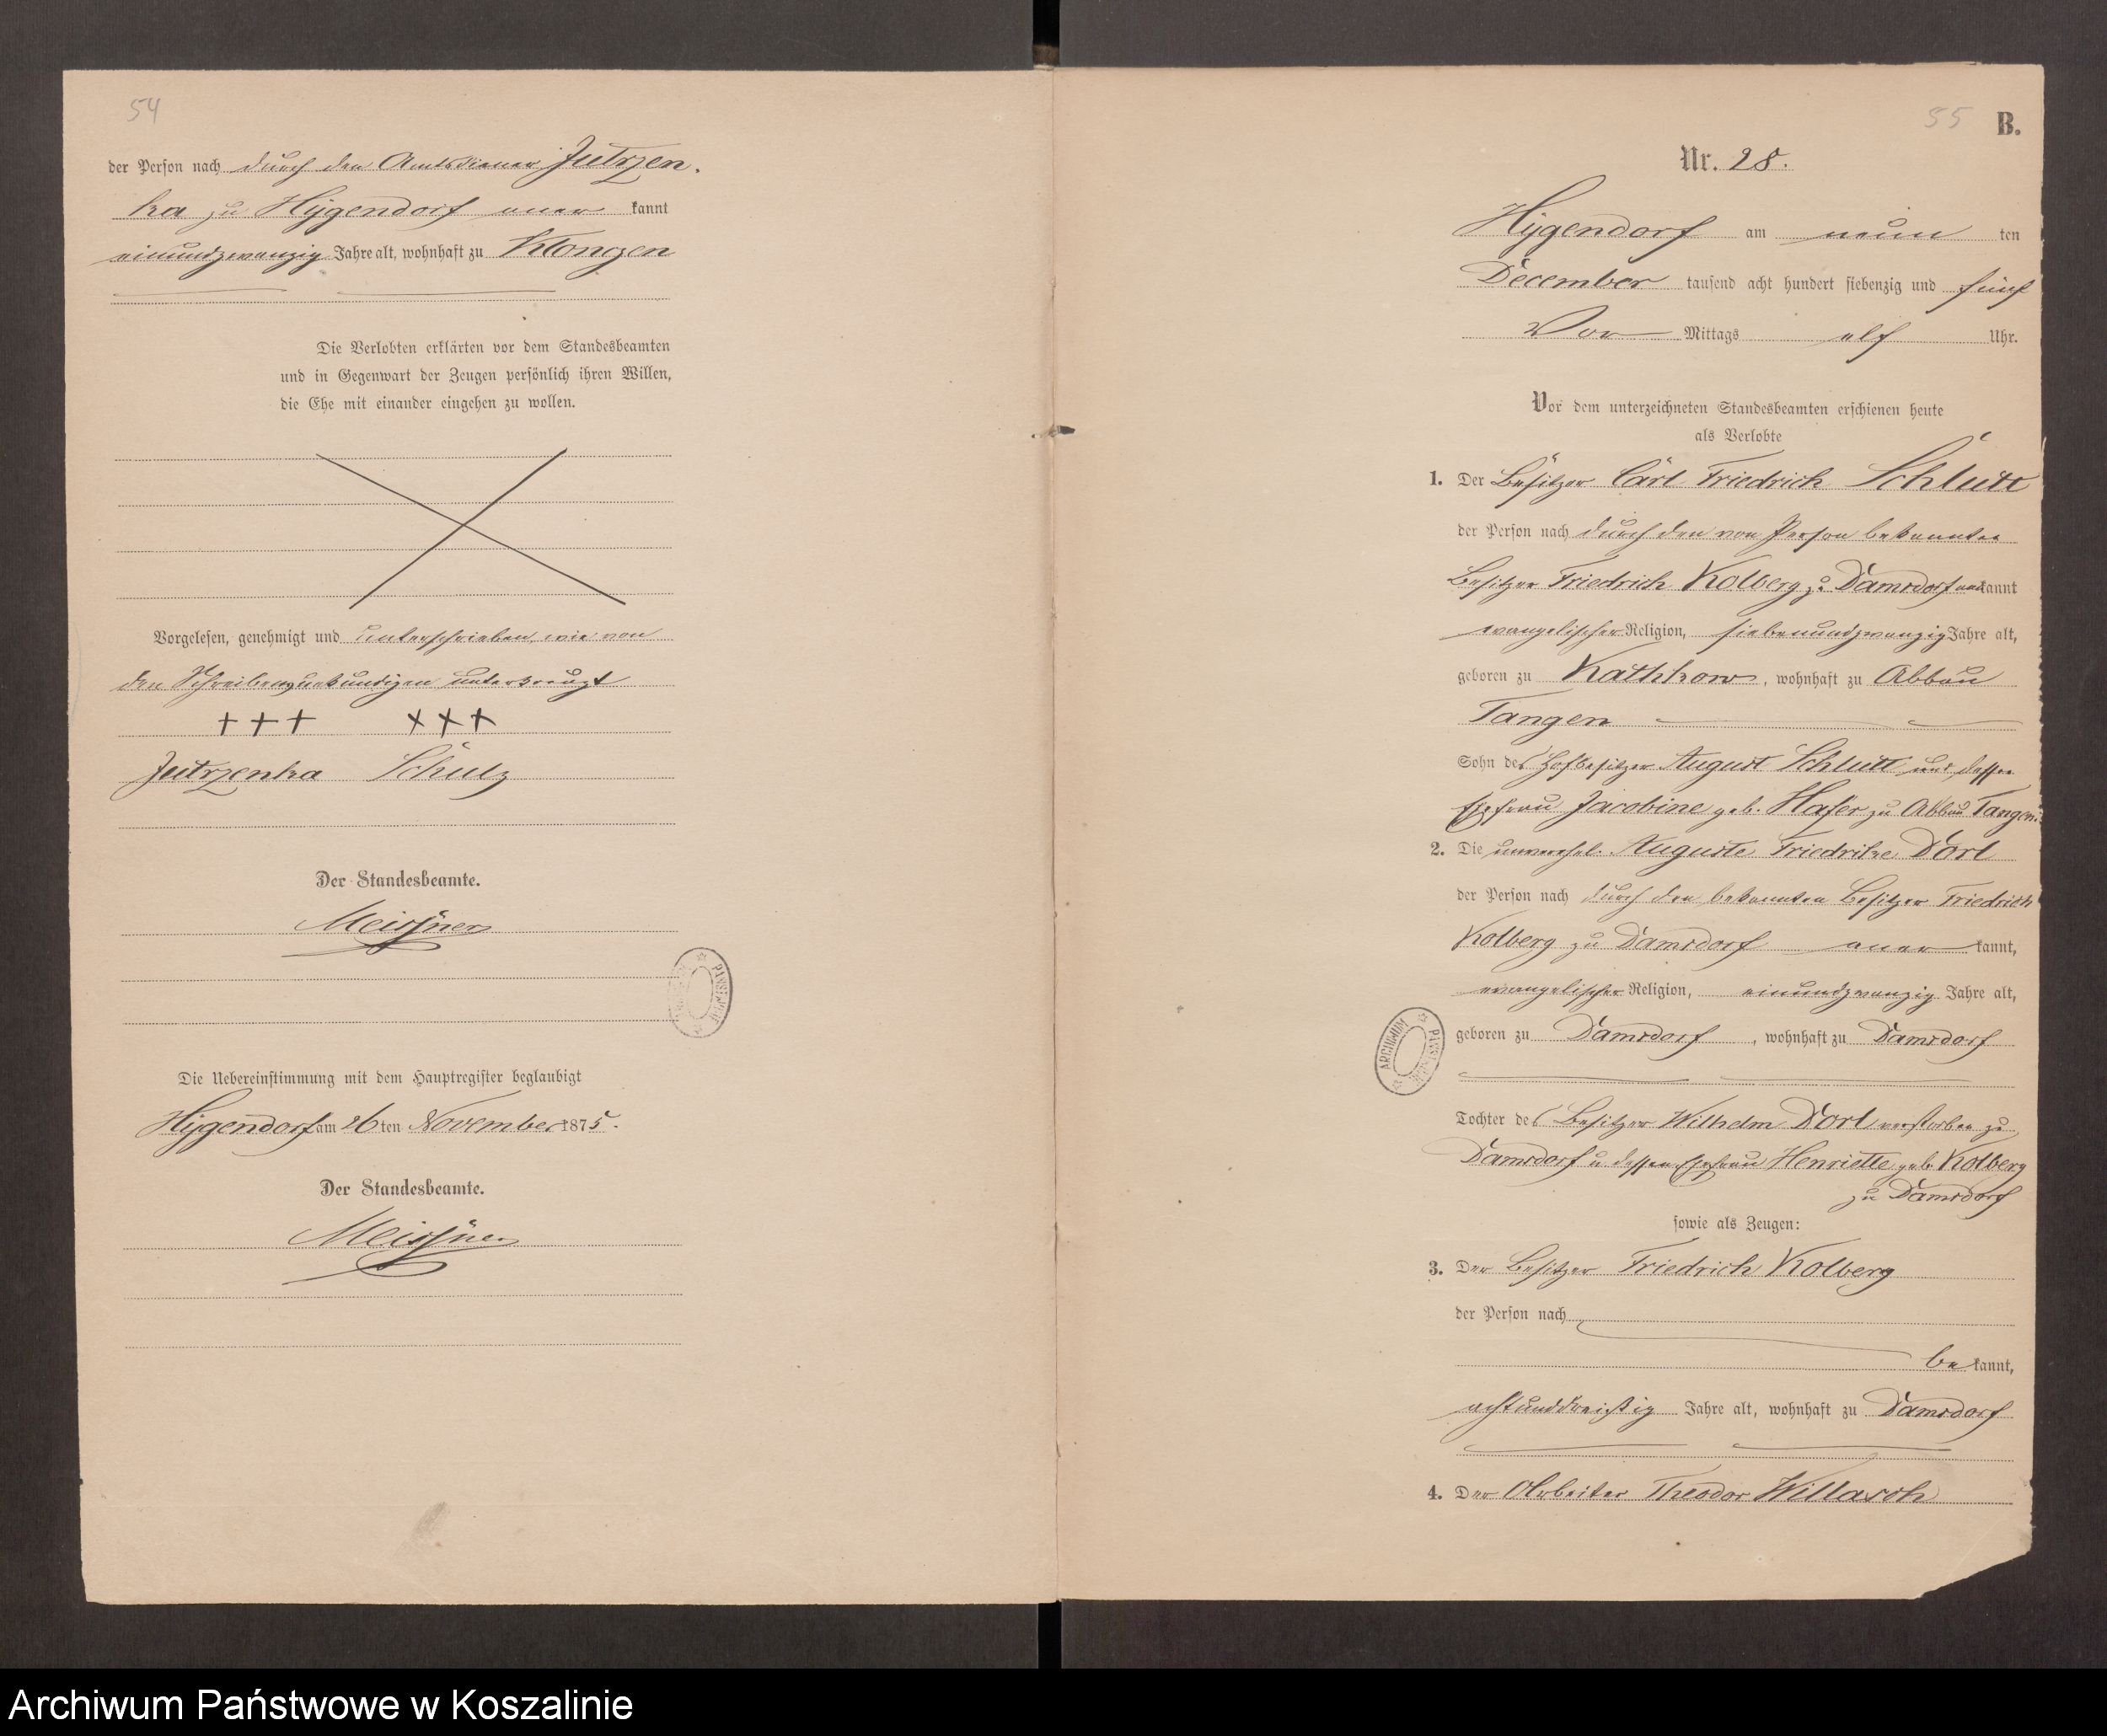 54
der Person nach durch den Amtsdiener Jutrzen-
ka zu Hygendorf aner kannt
einundzwanzig Jahre alt, wohnhaft zu Klonczen
Die Verlobten erklärten vor dem Standesbeamten
und in Gegenwart der Zeugen persönlich ihren Willen,
die Ehe mit einander eingehen zu wollen.
Vorgelesen, genehmigt und unterschrieben, wie von
den Schreibensunkundigen unterkreuzt
+++ +++
Jutrzenka Schulz
Der Standesbeamte.
Meissner
Die Uebereinstimmung mit dem Hauptregister beglaubigt
Hygendorf am 26 ten November 1875.
Der Standesbeamte.
Meissner
55 B.
Nr. 28.
Hygendorf am neun ten
December tausend acht hundert siebenzig und fünf
Vor Mittags elf Uhr.
Vor dem unterzeichneten Standesbeamten erschienen heute
als Verlobte
1. Der Besitzer Carl Friedrich Schlutt
der Person nach durch den von Person bekannten
Besitzer Friedrich Kolberg zu Damsdorf anerkannt
evangelischer Religion, siebenundzwanzig Jahre alt,
geboren zu Kathkow, wohnhaft zu Abbau
Tangen
Sohn des Hofbesitzer August Schlutt und dessen
Ehefrau Jacobine geb. Hafer zu Abbau Tangen.
2. Die unverehel. Auguste Friedrike Dorl
der Person nach durch den bekannten Besitzer Friedrich
Kolberg zu Damsdorf aner kannt,
evangelischer Religion, einundzwanzig Jahre alt,
geboren zu Damsdorf, wohnhaft zu Damsdorf
Tochter des Besitzer Wilhelm Dorl verstorben zu
Damsdorf u dessen Ehefrau Henriette geb. Kolberg
zu Damsdorf
sowie als Zeugen:
3. Der Besitzer Friedrich Kolberg
der Person nach
be kannt,
achtunddreißig Jahre alt, wohnhaft zu Damsdorf
4. Der Arbeiter Theodor Willasch
ARCHIWUM PAŃSTWOWE
Archiwum Państwowe w Koszalinie